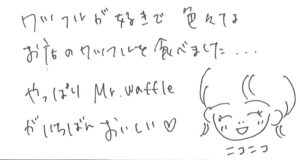 ワッフルが好きで 色んな
お店のワッフルを食べました...
やっぱり Mr.waffle
がいちばんおいしい♡
ニコニコ